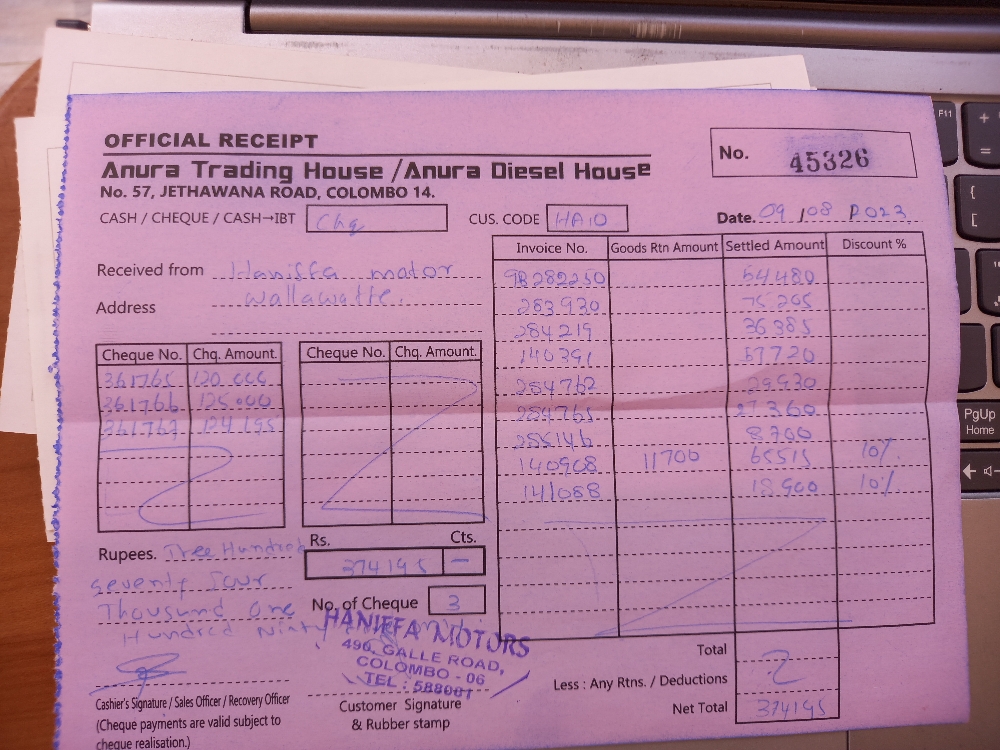 OFFICIAL RECEIPT
Anura Trading House / Anura Diesel House
No. 57, JETHAWANA ROAD, COLOMBO 14.
No. 45326
CASH / CHEQUE / CASH→IBT Chq
CUS. CODE HA10
Date. 09/08 2023
Received from Haniffa motor
Address wallawatte.
Cheque No. Chq. Amount.
361765 120.000
361766 125.000
361767 124195
Cheque No. Chq. Amount.
Invoice No. Goods Rtn Amount Settled Amount Discount %
9B282250 54480
283930 75205
284219 36385
140391 57720
284762 29930
284765 27360
285146 8700
140908 11700 65515 10%
141088 18900 10%
Rupees. Tree Hundred
seventy four
Thousund one
Hundred Ninty
Rs. Cts.
374195 —
No. of Cheque 3
HANIFFA MOTORS
490, GALLE ROAD,
COLOMBO - 06
TEL : 588001
Cashier's Signature / Sales Officer / Recovery Officer
(Cheque payments are valid subject to
cheque realisation.)
Customer Signature
& Rubber stamp
Total
Less : Any Rtns. / Deductions
Net Total 374195
F11
+
=
{
[
PgUp
Home